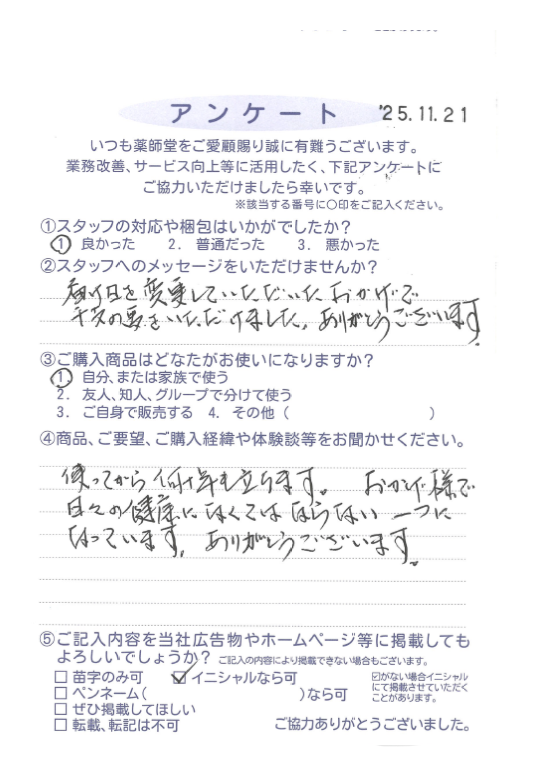 アンケート
'25.11.21
いつも薬師堂をご愛顧賜り誠に有難うございます。
業務改善、サービス向上等に活用したく、下記アンケートに
ご協力いただけましたら幸いです。
※該当する番号に○印をご記入ください。
①スタッフの対応や梱包はいかがでしたか?
1 良かった 2. 普通だった 3. 悪かった
②スタッフへのメッセージをいただけませんか?
届け日を変更していただいたおかげで
をいただけました。ありがとうございます。
③ご購入商品はどなたがお使いになりますか?
1 自分、または家族で使う
2. 友人、知人、グループで分けて使う
3. ご自身で販売する 4. その他( )
④商品、ご要望、ご購入経緯や体験談等をお聞かせください。
使ってから何十年も立ちます。 おかげ様で
日々の健康になくてはならない一つに
なっています。ありがとうございます。
⑤ご記入内容を当社広告物やホームページ等に掲載しても
よろしいでしょうか? ご記入の内容により掲載できない場合もございます。
□ 苗字のみ可 ☑ イニシャルなら可
□ ペンネーム( )なら可
□ ぜひ掲載してほしい
□ 転載、転記は不可
☑がない場合イニシャル
にて掲載させていただく
ことがあります。
ご協力ありがとうございました。